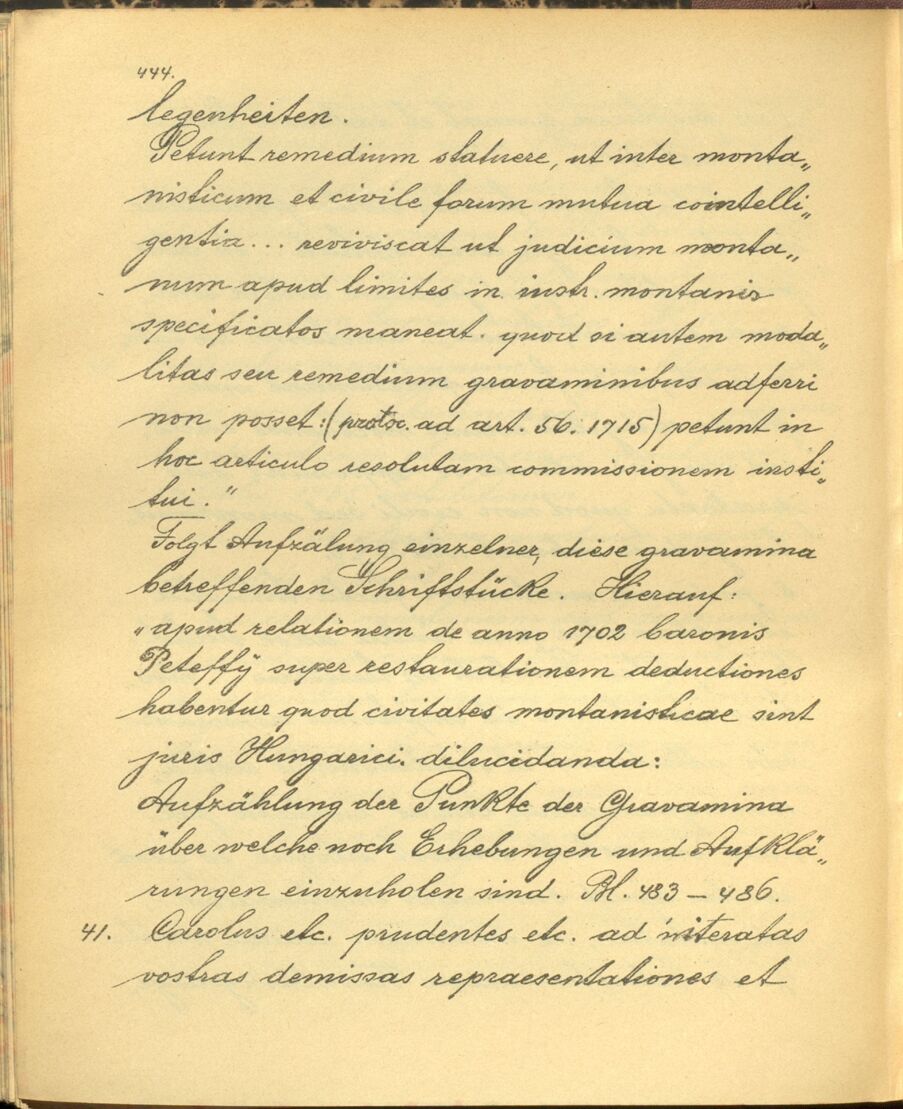 444.
legenheiten.
Petunt remedium statuere, ut inter monta„
nisticum et civile forum mutua cointelli„
gentia... reviviscat ut judicium monta„
num apud limites in instr. montanis
specificatos maneat. quod si autem moda„
litas seu remedium gravaminibus adferri
non posset:(protoc. ad art. 56. 1715) petunt in
hoc articulo resolutam commissionem insti„
tui."
Folgt Aufzälung einzelner, diese gravamina
betreffenden Schriftstücke. Hierauf:
„apud relationem de anno 1702 baronis
Peteffÿ super restaurationem deductiones
habentur quod civitates montanisticae sint
juris Hungarici. dilucidanda:
Aufzählung der Punkte der Gravamina
über welche noch Erhebungen und Aufklä„
rungen einzuholen sind. Bl. 483 – 486.
41. Carolus etc. prudentes etc. ad initeratas
vostras demissas repraesentationes et